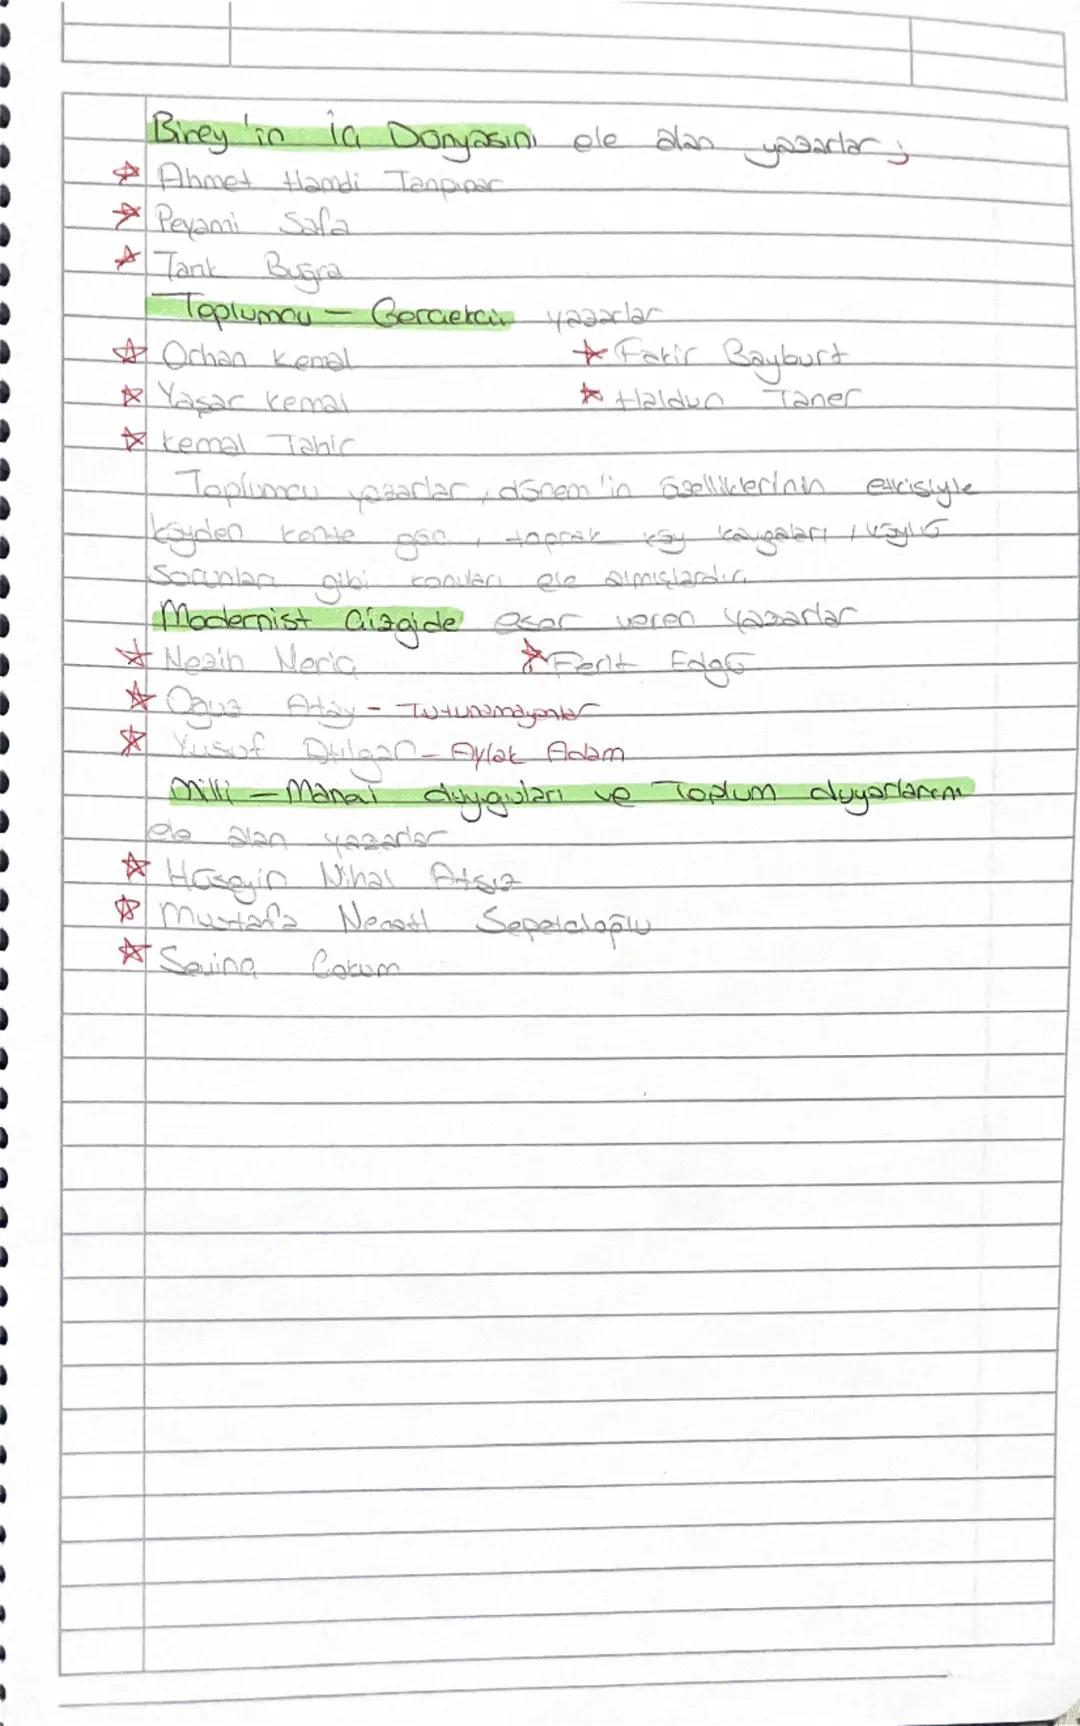 Birey'in İç Dünyasını ele alan yazarlar;
Ahmet Hamdi Tanpınar
Peyami Safa
Tarık Buğra
Toplumcu - Gerçekçi yazarlar
Orhan Kemal Fakir Bayburt
Yaşar Kemal Haldun Taner
Kemal Tahir
Toplumcu yazarlar, dönem'in özelliklerinin etkisiyle
köyden kente göç, toprak köy kavgaları, köylü
sorunları gibi konuları ele almışlardır.
Modernist Çizgide eser veren yazarlar
Nezih Meriç Ferit Edgü
Oğuz Atay - Tutunamayanlar
Yusuf Atılgan - Aylak Adam
Milli - Manevi duyguları ve Toplum duyarlarını
ele alan yazarlar
Hüseyin Nihal Atsız
Mustafa Necati Sepetçioğlu
Sevinç Çokum